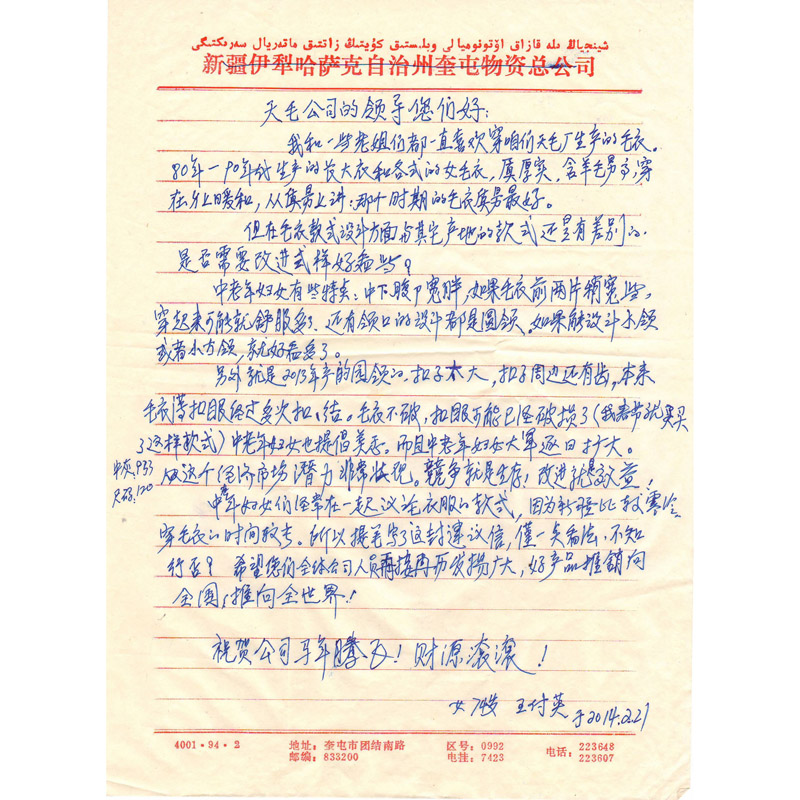 شينجياڭ ىله قازاق اۆتونوميالى وبلىستىق كۇيتىڭ زاتتىق ماتەريال سەرىكتىگى
新疆伊犁哈萨克自治州奎屯物资总公司
天毛公司的领导您们好:
我和一些老姐们都一直喜欢穿咱们天毛厂生产的毛衣。
80年—90年代生产的长大衣和各式的女毛衣,质厚实,含羊毛量高,穿
在身上暖和,从质量上讲:那个时期的毛衣质量最好。
但在毛衣款式设计方面与其它产地的款式还是有差别的。
是否需要改进式样好看些?
中老年妇女有些特点:中下腹部宽胖,如果毛衣前两片稍宽些,
穿起来可能就舒服多了。还有领口的设计都是圆领。如果能设计小领
或者小方领,就好看多了。
另外就是2013年产的圆领的,扣子太大,扣子周边还有齿,本来
毛衣薄扣眼经过多次扣、结。毛衣不破,扣眼可能已经破损了(我春节就买
了这样款式)中老年妇女也提倡美丽。而且中老年妇女大军逐日扩大。
从这个经济市场潜力非常壮观。竞争就是生存!改进就是效益!
中灰,933
尺码:120
中老年妇女们经常在一起议论衣服的款式,因为新疆比较寒冷
穿毛衣的时间较长。所以提笔写了这封建议信,仅一点看法,不知
行否? 希望您们全体公司人员再接再历发扬广大,好产品推销向
全国,推向全世界!
祝贺公司马年腾飞!财源滚滚!
女 74岁 王付英 于2014.2.21
4001·94·2
地址:奎屯市团结南路
邮编:833200
区号:0992
电挂:7423
电话:223648
223607